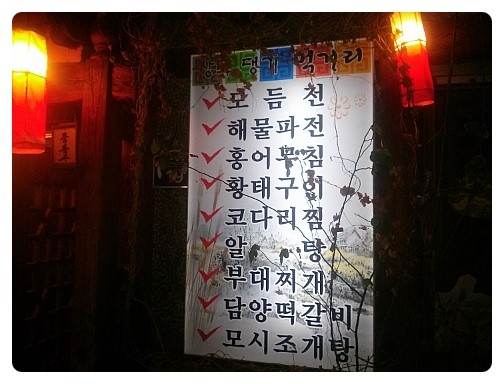 댕기 먹거리
모 듬 천
해물파전
홍어무침
황태구이
코다리찜
알 탕
부대찌개
담양떡갈비
모시조개탕